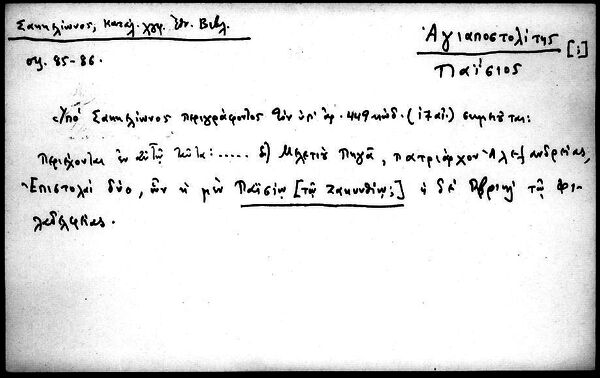 Σακκελίωνος, Καταλ. χφφ. Ἐθν. Βιβλ.
σσ. 85-86.
Ἁγιαποστολίτης [;]
Παΐσιος
Ὑπό Σακκελίωνος περιγράφοντος τὸν ὑπ' ἀρ. 449 κώδ. (ιζ αἰ.) σημειοῦται:
Περιέχονται ἐν αὐτῷ ταῦτα: ..... δ) Μελετίου Πηγᾶ, πατριάρχου Ἀλεξανδρείας,
Ἐπιστολαί δύο, ὧν ἡ μὲν Παϊσίῳ [τῷ Ζακυνθίῳ;] ἡ δέ Γαβριήλ τῷ Φι-
λαδελφείας.